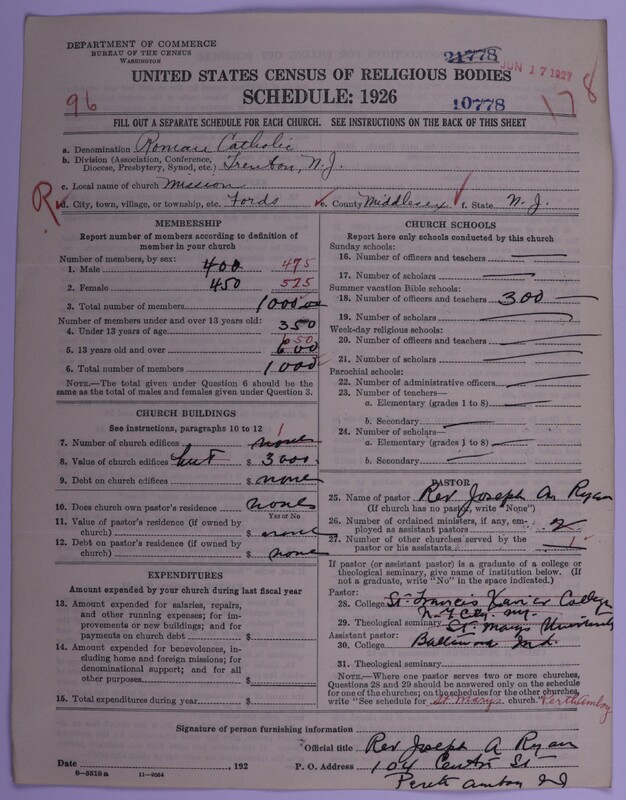 DEPARTMENT OF COMMERCE
BUREAU OF THE CENSUS
WASHINGTON
21778
JUN 17 1927
UNITED STATES CENSUS OF RELIGIOUS BODIES
SCHEDULE: 1926
96
10778
178
FILL OUT A SEPARATE SCHEDULE FOR EACH CHURCH. SEE INSTRUCTIONS ON THE BACK OF THIS SHEET
a. Denomination Roman Catholic
b. Division (Association, Conference, Diocese, Presbytery, Synod, etc.) Trenton, N.J.
c. Local name of church Mission
R
d. City, town, village, or township, etc. Fords e. County Middlesex f. State N.J.
MEMBERSHIP
Report number of members according to definition of
member in your church
Number of members, by sex:
1. Male 400 475
2. Female 450 525
3. Total number of members 1000
Number of members under and over 13 years old:
4. Under 13 years of age 350
5. 13 years old and over 600 650
6. Total number of members 1000
NOTE.—The total given under Question 6 should be the
same as the total of males and females given under Question 3.
CHURCH BUILDINGS
See instructions, paragraphs 10 to 12
7. Number of church edifices none 1
8. Value of church edifices hut $ 3000
9. Debt on church edifices $ none
10. Does church own pastor's residence
Yes or No
11. Value of pastor's residence (if owned by
church) $ none
12. Debt on pastor's residence (if owned by
church) $ none
EXPENDITURES
Amount expended by your church during last fiscal year
13. Amount expended for salaries, repairs,
and other running expenses; for im-
provements or new buildings; and for
payments on church debt $
14. Amount expended for benevolences, in-
cluding home and foreign missions; for
denominational support; and for all
other purposes $
15. Total expenditures during year $
CHURCH SCHOOLS
Report here only schools conducted by this church
Sunday schools:
16. Number of officers and teachers
17. Number of scholars
Summer vacation Bible schools:
18. Number of officers and teachers 300
19. Number of scholars
Week-day religious schools:
20. Number of officers and teachers
21. Number of scholars
Parochial schools:
22. Number of administrative officers
23. Number of teachers—
a. Elementary (grades 1 to 8)
b. Secondary
24. Number of scholars—
a. Elementary (grades 1 to 8)
b. Secondary
PASTOR
25. Name of pastor Rev Joseph A Ryan
(If church has no pastor, write "None")
26. Number of ordained ministers, if any, em-
ployed as assistant pastors 2
27. Number of other churches served by the
pastor or his assistants 1
If pastor (or assistant pastor) is a graduate of a college or
theological seminary, give name of institution below. (If
not a graduate, write "No" in the space indicated.)
Pastor:
28. College St. Francis Xavier College
N.Y City N.Y.
29. Theological seminary St. Marys University
Assistant pastor:
30. College Baltimore Md.
31. Theological seminary
NOTE.—Where one pastor serves two or more churches,
Questions 28 and 29 should be answered only on the schedule
for one of the churches; on the schedules for the other churches,
write "See schedule for St. Marys church." Perth Amboy
Signature of person furnishing information
Official title Rev Joseph A Ryan
Date , 192 P. O. Address 104 Center St
8—5518 a 11—9564 Perth Amboy NJ